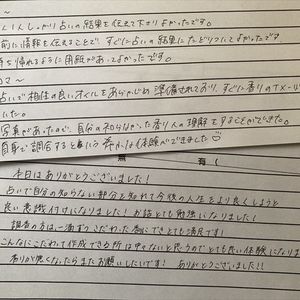 しっかり占いの結果を伝えて下さりよかったです。
前に情報を伝えることで、すぐに占いの結果にたどりつけてよかったです
持ち帰れるように用紙があってよかったです。
占いで相性の良いオイルをあらかじめ準備されており、すぐに香りの
写真があったので、自分の知らなかった香りへの理解を
自身で調合するという
無 有(
本日はありがとうございました!
占いで自分の知らない部分を知れて今後の人生をより良くしようと
良い意識付けになりました!お話とても勉強になりました!
調香の方は一滴ずつこだわった香りにできとても満足です!
こんなにこだわって作成できる所は中々ないと思うのでとても良い体験になりま
香りが無くなったらまたお願いしたいです! ありがとうございました!!